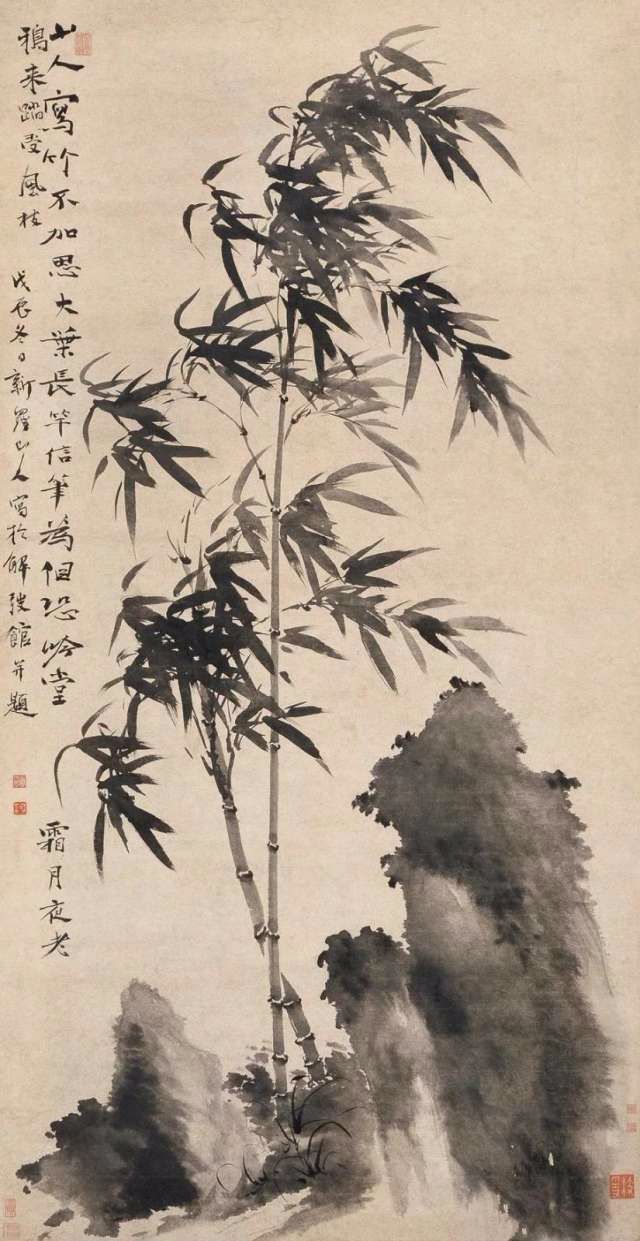 山人寫竹不加思大葉長竿信筆為但恐吟堂霜月夜老
鴉来踏受風枝 戊辰冬日新羅山人寫於解弢館并題